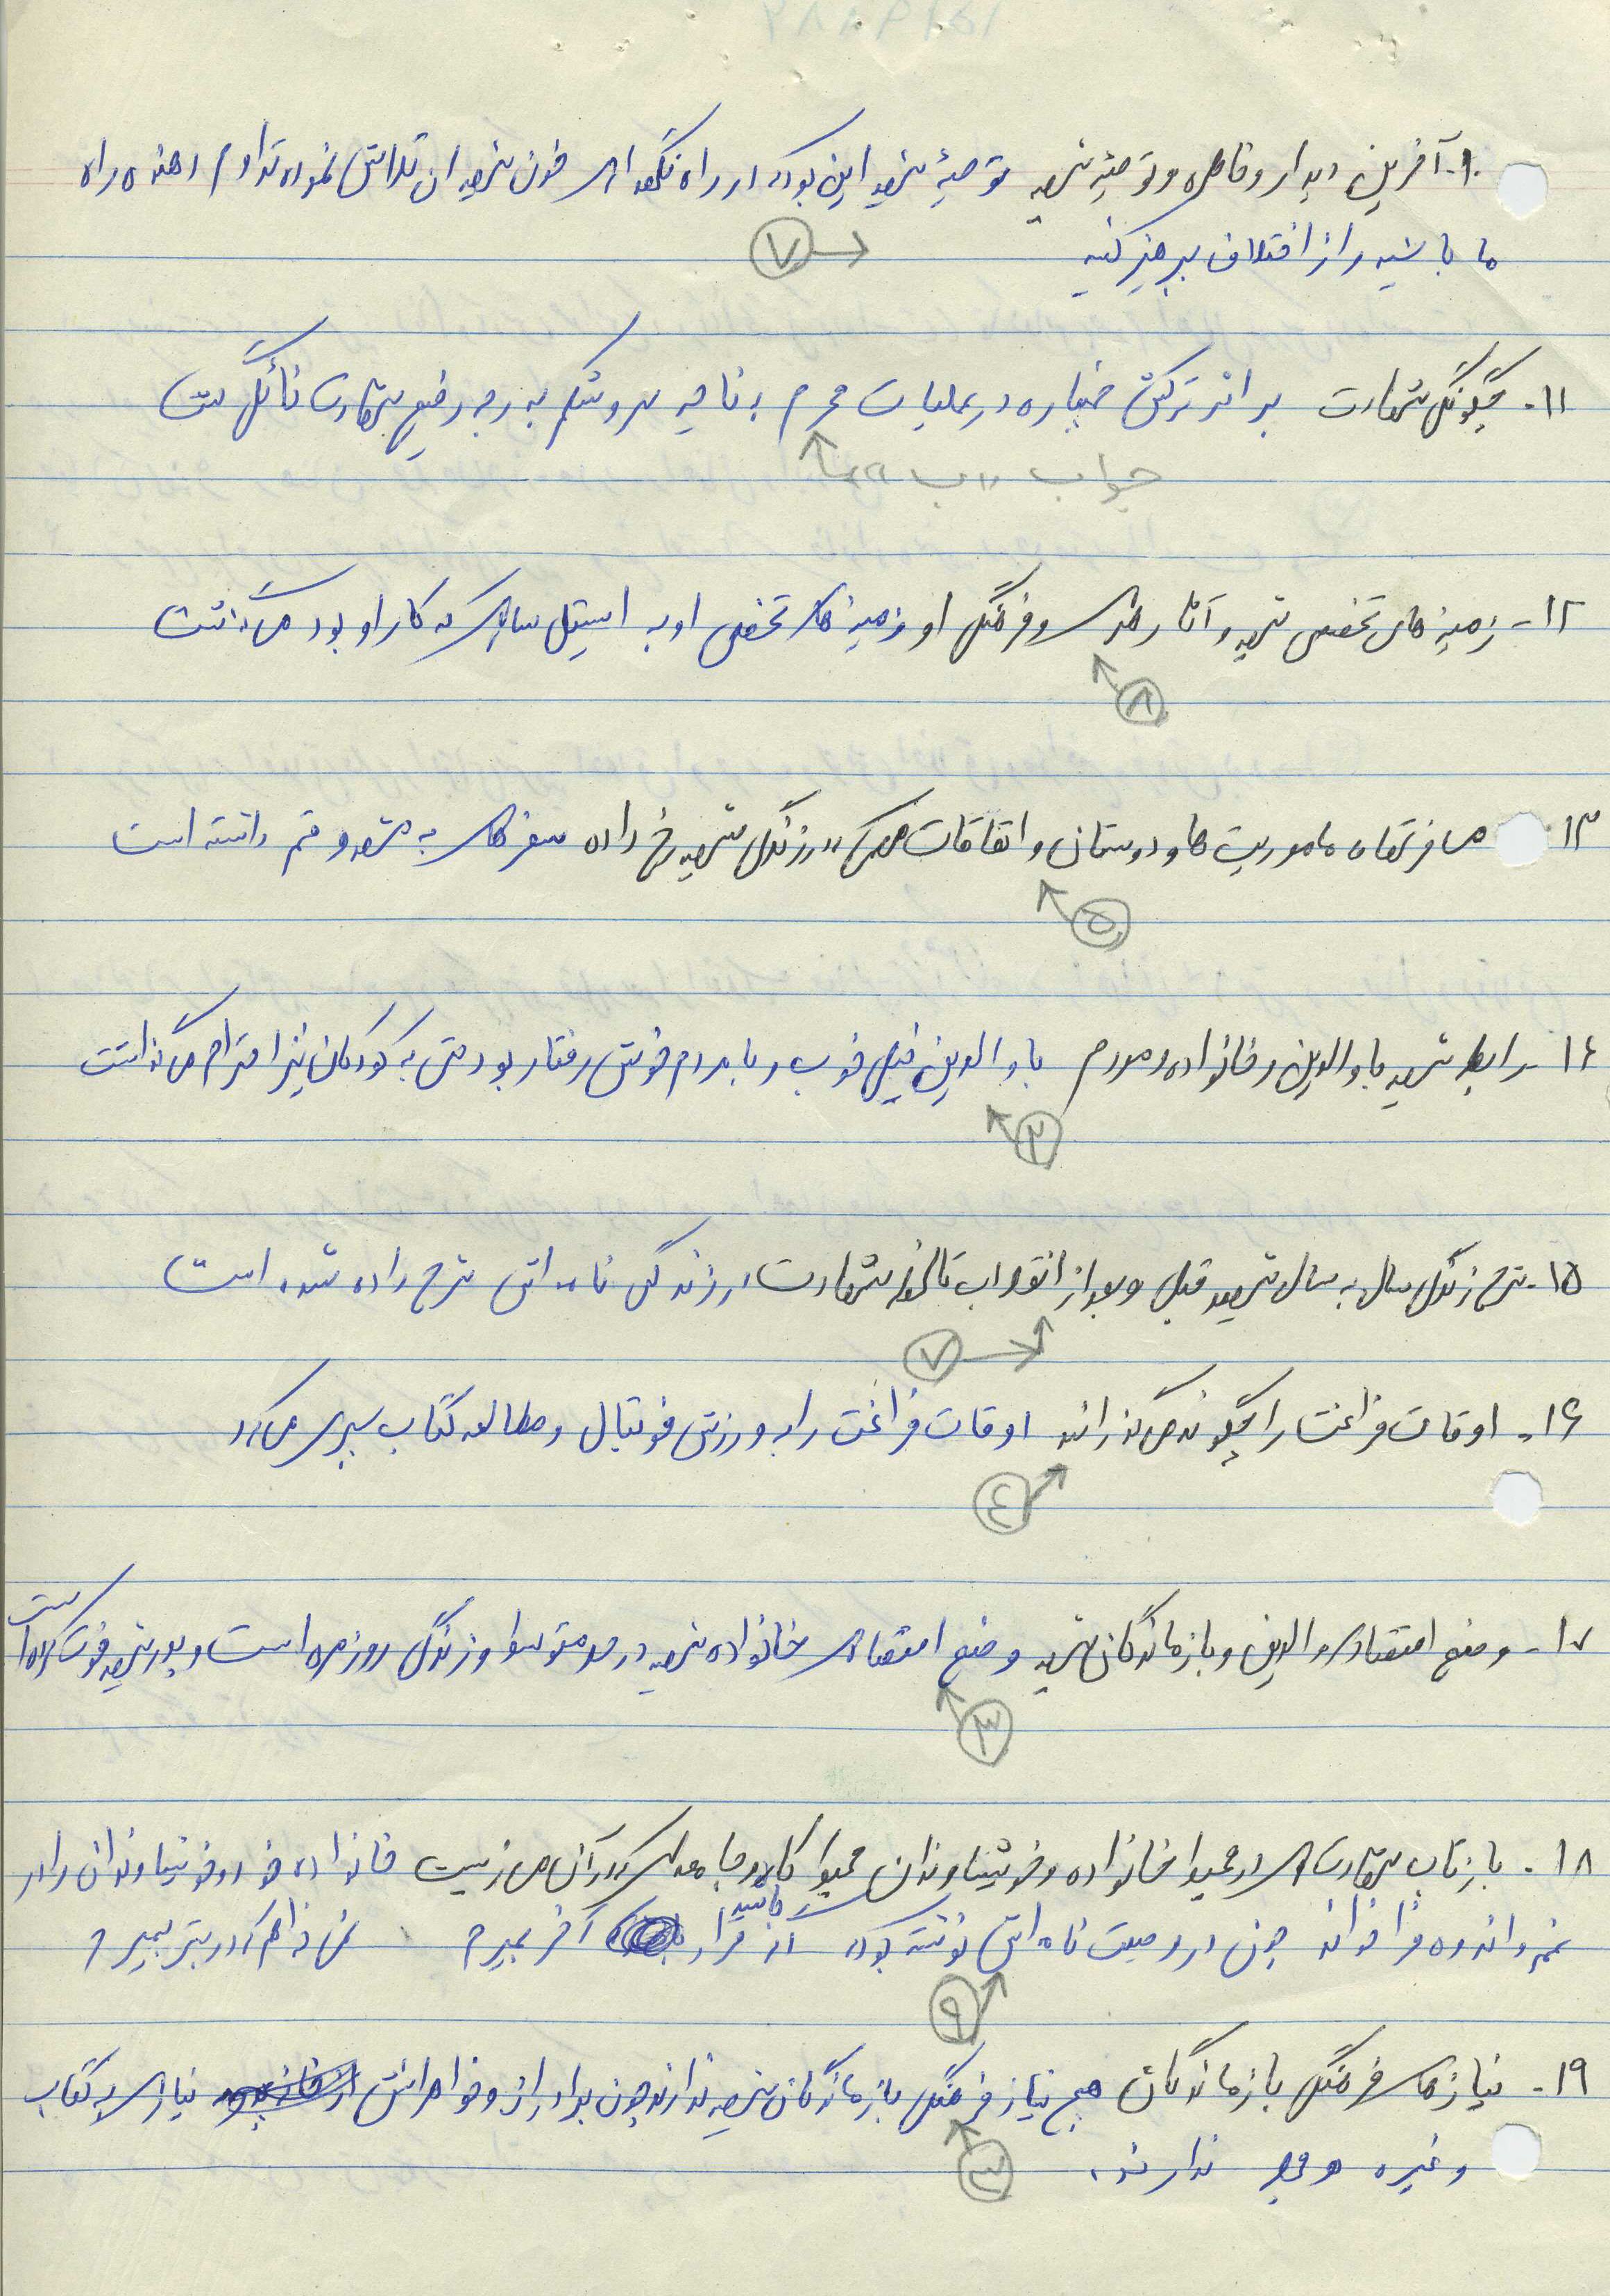 ۱۰- آخرین دیدار و خاطره و توصیه شهید توصیه شهید این بود که در راه نگهداری خون شهیدان تلاش نموده تداوم دهنده راه
ما باشید و از اختلاف بپرهیز کنید
۷
۱۱- چگونگی شهادت بر اثر ترکش خمپاره در عملیات محرم به ناحیه سر و شکم به درجه رفیع شهادت نائل گشت
جواب «ب»
۱۲- زمینه های تخصصی شهید و آثار هنری و فرهنگی او زمینه های تخصصی او به استیل سازی که کار او بود می گذشت
۸
۱۳- مسافرتها، ماموریت ها و دوستان و اتفاقات مهمی که در زندگی شهید رخ داده سفرهای به مشهد و قم داشته است
۵
۱۴- رابطه شهید با والدین و خانواده و مردم با والدین خیلی خوب و با مردم خوش رفتار بود حتی به کودکان نیز احترام می گذاشت
۲
۱۵- شرح زندگی سال به سال شهید قبل و بعد از انقلاب تا لحظه شهادت در زندگی نامه اش شرح داده شده است
۷
۱۶- اوقات فراغت را چگونه می گذراند اوقات فراغت را به ورزش فوتبال و مطالعه کتاب سپری می کرد
٤
۱۷- وضع اقتصادی والدین و بازماندگان شهید وضع اقتصادی خانواده شهید در حد متوسط و زندگی روزمره است و پدر شهید فوت کرده است
۳
۱۸- بازتاب شهادت او در محیط خانواده و خویشاوندان محیط کار و جامعه ای که در آن می زیست خانواده خود و خویشاوندان را در
غم و اندوه فرا خواند چون در وصیت نامه اش نوشته بود که اگر قرار باشد آخر بمیرم نمی خواهم که در بستر بمیرم
۹
۱۹- نیازهای فرهنگی بازماندگان هیچ نیاز فرهنگی بازماندگان شهید ندارند چون برادران و خواهرانش نیازی به کتاب
۳
و غیره ندارند.